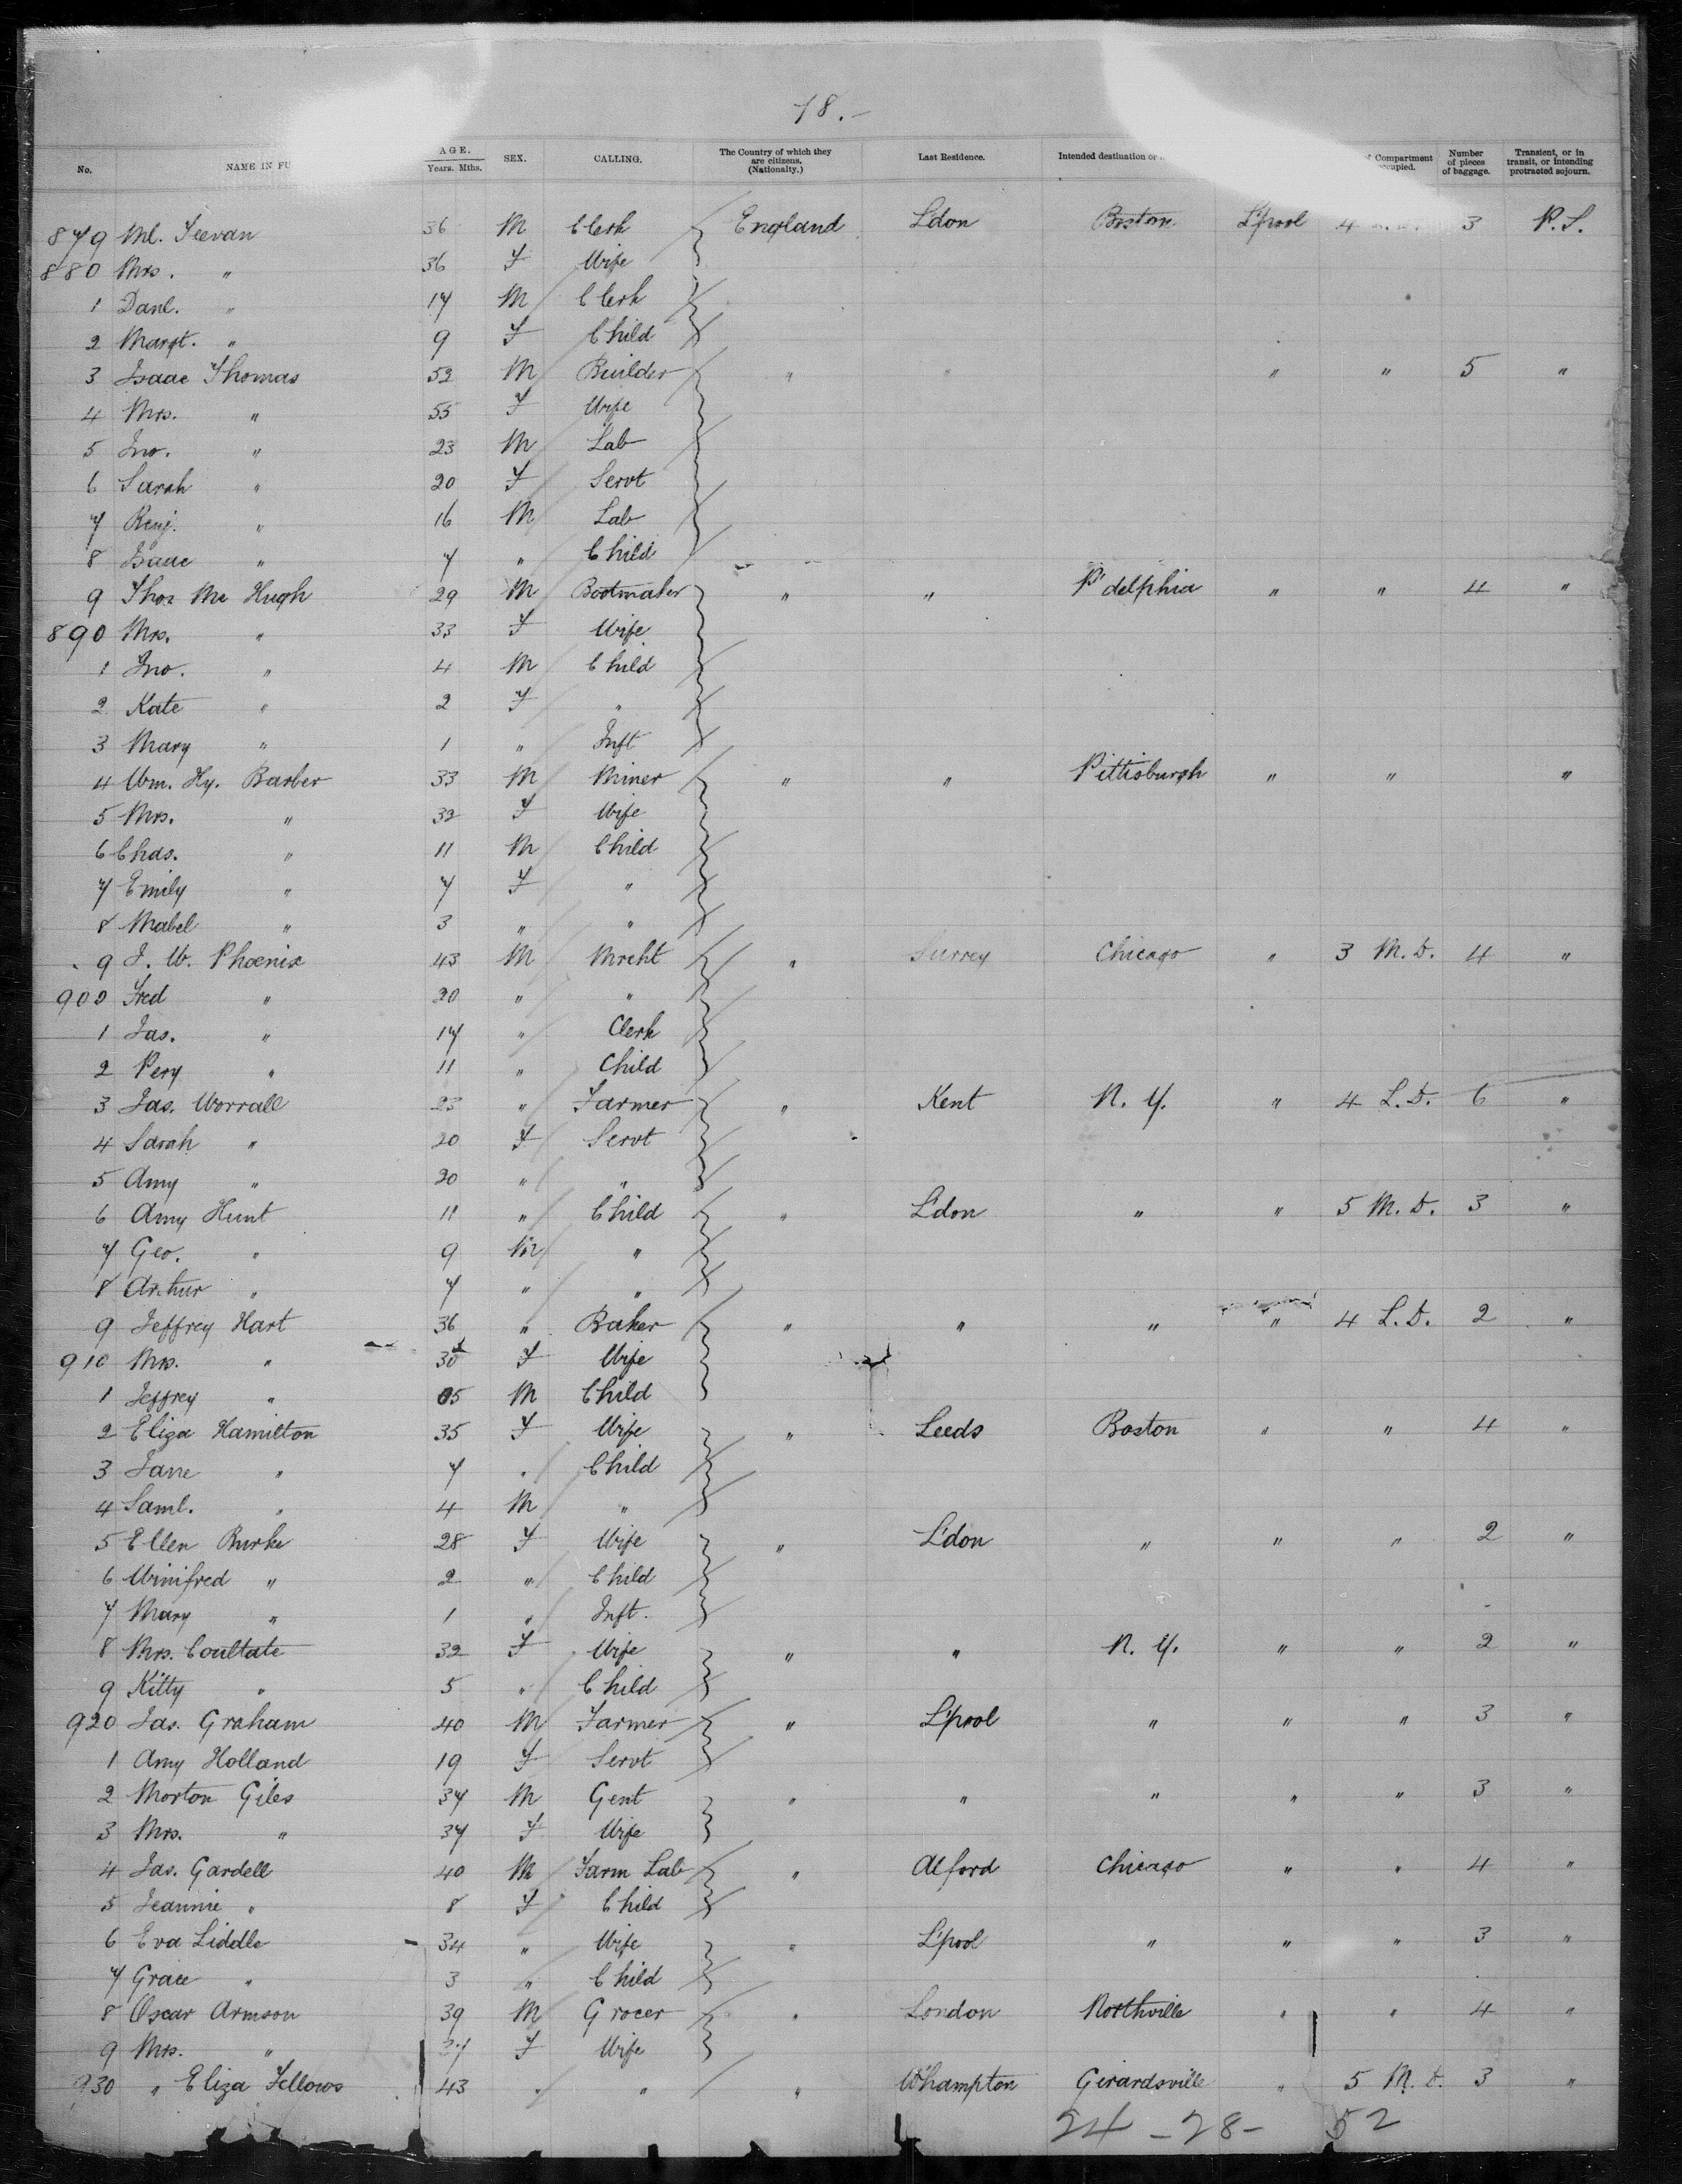 18.-
No. NAME IN FU AGE. Years. Mths. SEX. CALLING. The Country of which they are citizens. (Nationalty.) Last Residence. Intended destination or Compartment cupied. Number of pieces of baggage. Transient, or in transit, or intending protracted sojourn.
879 Ml. Teevan 36 M Clerk England L'don Boston L'pool 4 3 P.S.
880 Mrs. " 36 F Wife
1 Danl. " 17 M Clerk
2 Margt. " 9 F Child
3 Isaac Thomas 52 M Builder " " " " 5 "
4 Mrs. " 55 F Wife
5 Jno. " 23 M Lab
6 Sarah " 20 F Servt
7 Benj. " 16 M Lab
8 Isaac " 7 " Child
9 Thos Mc Hugh 29 M Bootmaker " " P'delphia " " 4 "
890 Mrs. " 33 F Wife
1 Jno. " 4 M Child
2 Kate " 2 F "
3 Mary " 1 " Inft
4 Wm. Hy. Barber 33 M Miner " " Pittisburgh " " "
5 Mrs. " 32 F Wife
6 Chas. " 11 M Child
7 Emily " 7 F "
8 Mabel " 3 " "
9 J. W. Phoenix 43 M Mrcht " Surrey Chicago " 3 M.D. 4 "
900 Fred " 20 " "
1 Jas. " 17 " Clerk
2 Percy " 11 " Child
3 Jas. Worrall 23 " Farmer " Kent N.Y. " 4 L.D. 6 "
4 Sarah " 20 F Servt
5 Amy " 20 " "
6 Amy Hunt 11 " Child " L'don " " 5 M.D. 3 "
7 Geo. " 9 M "
8 Arthur " 7 " "
9 Jeffrey Hart 36 " Baker " " " " 4 L.D. 2 "
910 Mrs. " 30 F Wife
1 Jeffrey " 05 M Child
2 Eliza Hamilton 35 F Wife " Leeds Boston " " 4 "
3 Jane " 7 " Child
4 Saml. " 4 M "
5 Ellen Burke 28 F Wife " L'don " " " 2 "
6 Winifred " 2 " Child
7 Mary " 1 " Inft.
8 Mrs. Coultate 32 F Wife " " N.Y. " " 2 "
9 Kitty " 5 " Child
920 Jas. Graham 40 M Farmer " L'pool " " " 3 "
1 Amy Holland 19 F Servt
2 Morton Giles 37 M Gent " " " " " 3 "
3 Mrs. " 37 F Wife
4 Jas. Gardell 40 M Farm Lab " Alford Chicago " " 4 "
5 Jeannie " 8 F Child
6 Eva Liddle 34 " Wife " L'pool " " " 3 "
7 Grace " 3 " Child
8 Oscar Armson 39 M Grocer " London Northville " " 4 "
9 Mrs. " 37 F Wife
930 " Eliza Fellows 43 " " " W'hampton Girardsville " 5 M.D. 3 "
24 - 28 - 52